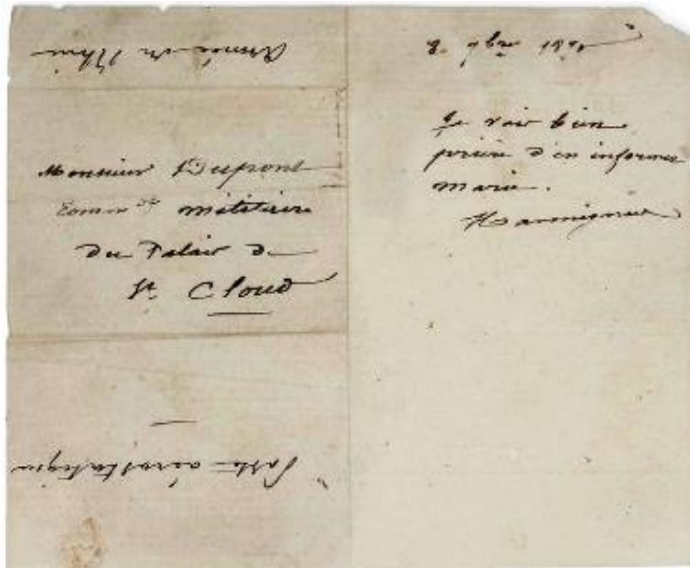 Armée du Rhin
Monsieur Dupont
Comm dt militaire
du Palais de
St Cloud
Poste aérostatique
8. 7bre 1870
Je vais bien
prière d'en informer
marie.